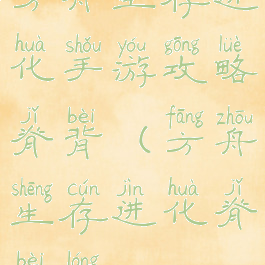 方舟生存进
huà shǒu yóu gōng lüè
化手游攻略
jǐ bèi fāng zhōu
脊背(方舟
shēng cún jìn huà jǐ
生存进化脊
bèi lóng